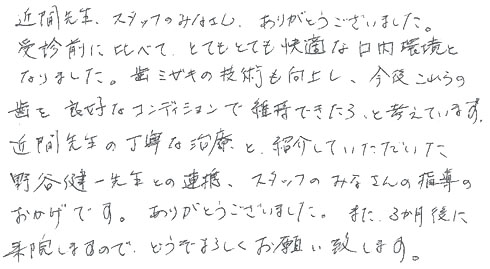 近間先生、スタッフのみなさん、ありがとうございました。
受診前に比べて、とてもとても快適な口内環境と
なりました。歯ミガキの技術も向上し、今後これらの
歯を良好なコンディションで維持できたら、と考えています。
近間先生の丁寧な治療と、紹介していただいた
野谷健一先生との連携、スタッフのみなさんの指導の
おかげです。ありがとうございました。また、3か月後に
来院しますので、どうぞよろしくお願い致します。